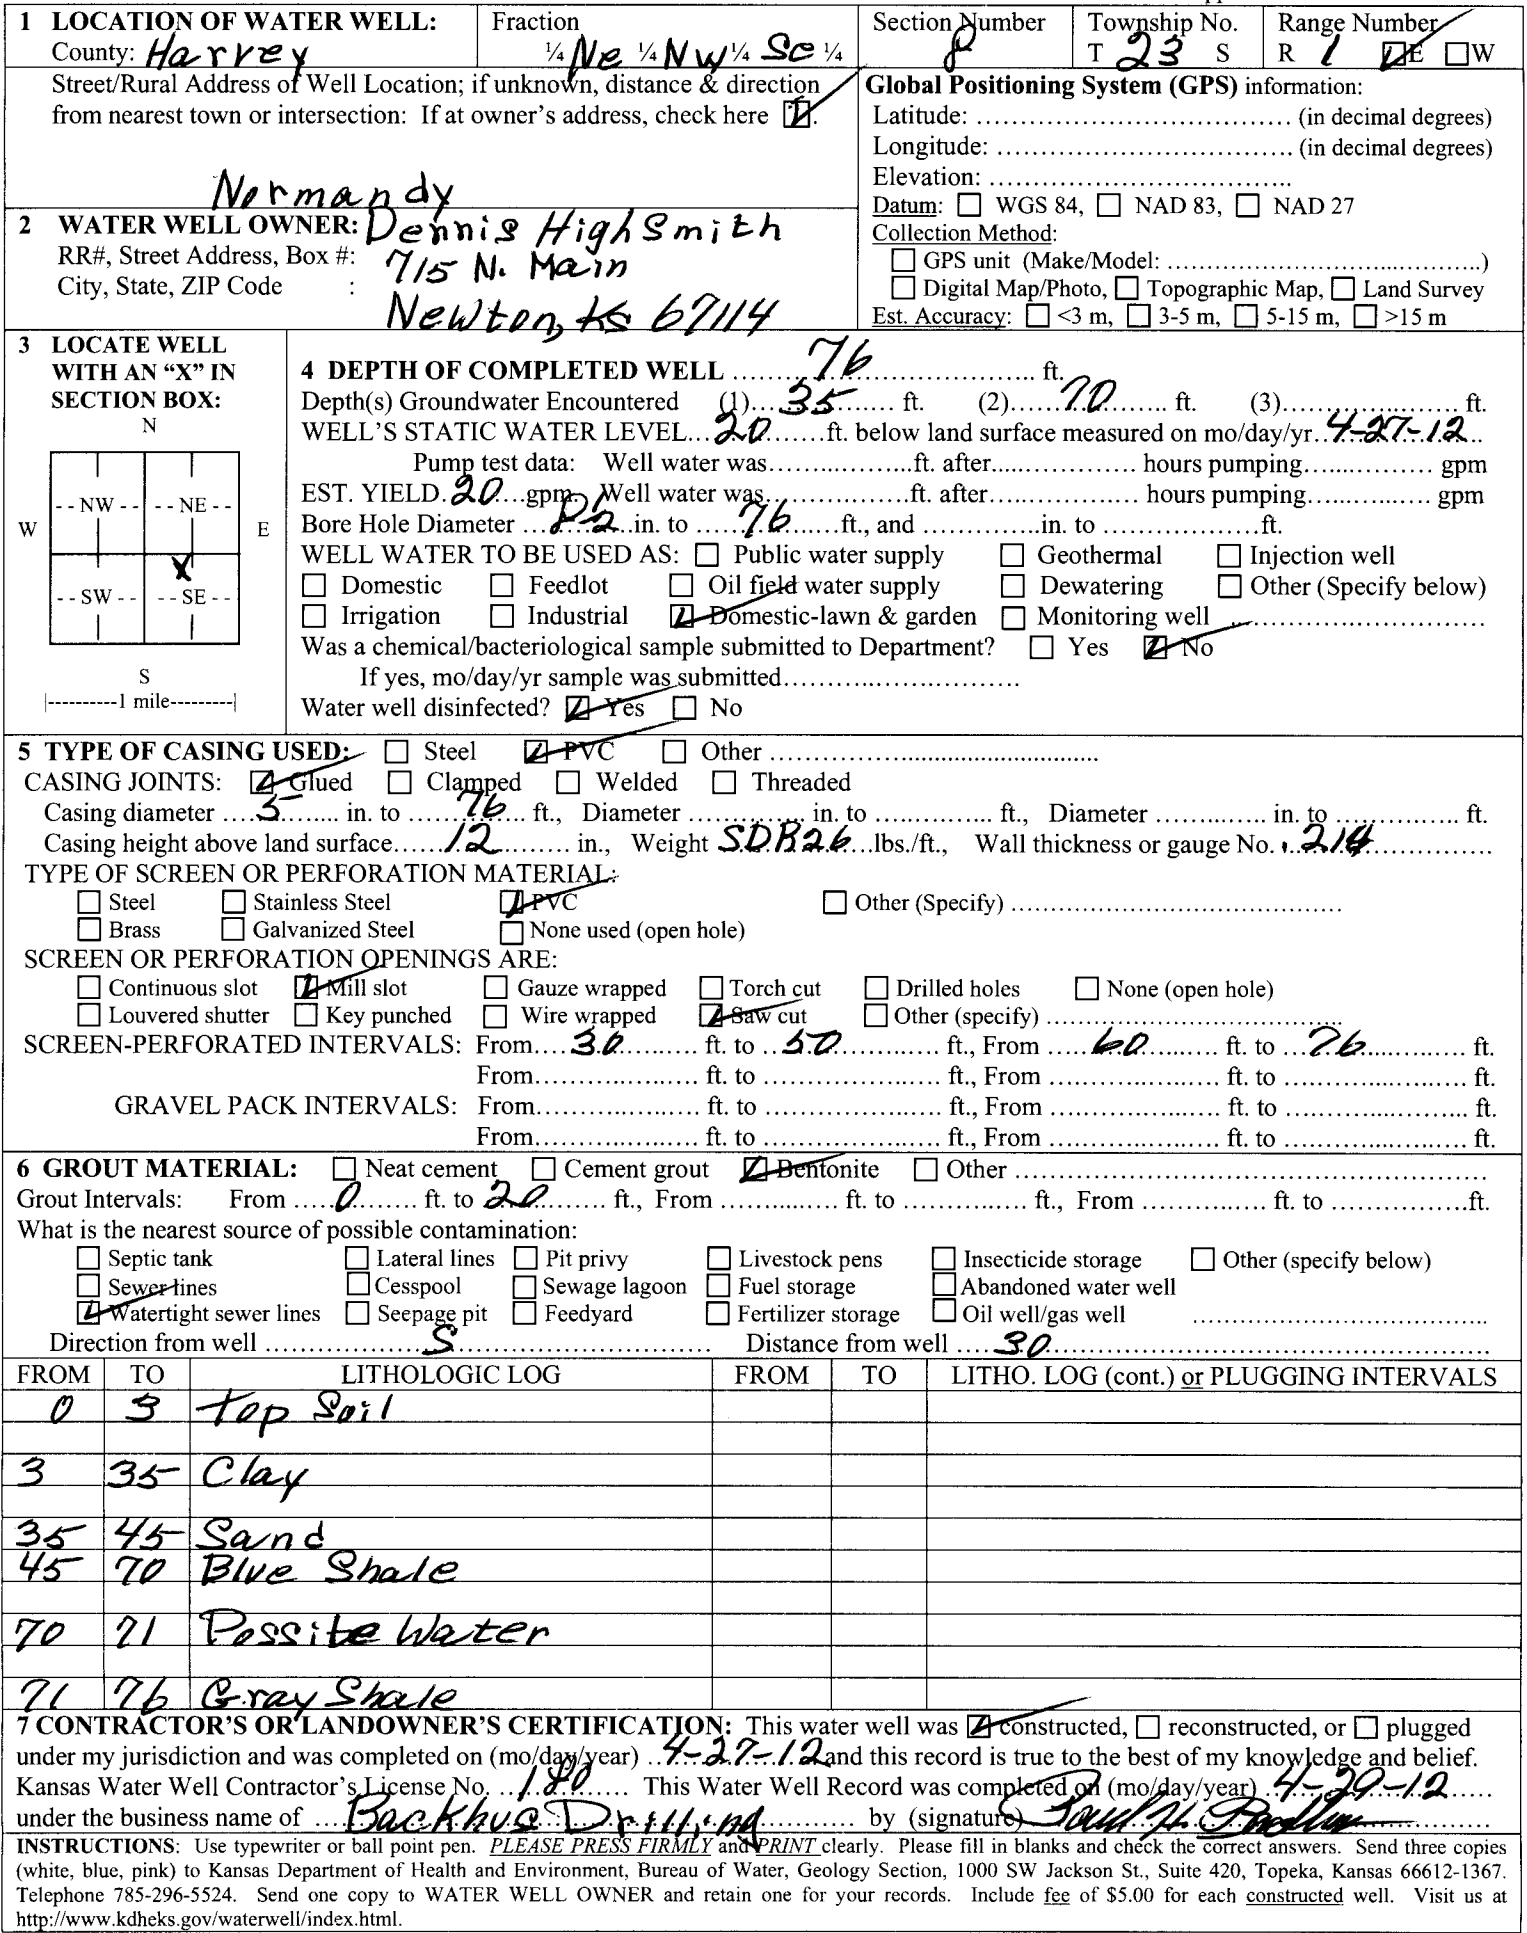 1 LOCATION OF WATER WELL: Fraction Section Number Township No. Range Number
County: Harvey ¼ Ne ¼ Nw ¼ Se ¼ 8 T 23 S R 1 ☑E ☐W
Street/Rural Address of Well Location; if unknown, distance & direction
from nearest town or intersection: If at owner's address, check here ☑.
Normandy
Global Positioning System (GPS) information:
Latitude: ........................ (in decimal degrees)
Longitude: ........................ (in decimal degrees)
Elevation: ........................
Datum: ☐ WGS 84, ☐ NAD 83, ☐ NAD 27
Collection Method:
☐ GPS unit (Make/Model: ........................)
☐ Digital Map/Photo, ☐ Topographic Map, ☐ Land Survey
Est. Accuracy: ☐ <3 m, ☐ 3-5 m, ☐ 5-15 m, ☐ >15 m
2 WATER WELL OWNER: Dennis Highsmith
RR#, Street Address, Box #: 715 N. Main
City, State, ZIP Code : Newton, Ks 67114
3 LOCATE WELL
WITH AN "X" IN
SECTION BOX:
N
NW NE
W E
X
SW SE
S
|----------1 mile---------|
4 DEPTH OF COMPLETED WELL ..... 76 ..... ft.
Depth(s) Groundwater Encountered (1) 35 ft. (2) 70 ft. (3) ........ ft.
WELL'S STATIC WATER LEVEL 20 ft. below land surface measured on mo/day/yr 4-27-12
Pump test data: Well water was ........ ft. after ........ hours pumping ........ gpm
EST. YIELD 20 gpm. Well water was ........ ft. after ........ hours pumping ........ gpm
Bore Hole Diameter in. to 76 ft., and ........ in. to ........ ft.
WELL WATER TO BE USED AS: ☐ Public water supply ☐ Geothermal ☐ Injection well
☐ Domestic ☐ Feedlot ☐ Oil field water supply ☐ Dewatering ☐ Other (Specify below)
☐ Irrigation ☐ Industrial ☑ Domestic-lawn & garden ☐ Monitoring well ........
Was a chemical/bacteriological sample submitted to Department? ☐ Yes ☑ No
If yes, mo/day/yr sample was submitted ........
Water well disinfected? ☑ Yes ☐ No
5 TYPE OF CASING USED: ☐ Steel ☑ PVC ☐ Other ........
CASING JOINTS: ☑ Glued ☐ Clamped ☐ Welded ☐ Threaded
Casing diameter 5 in. to 76 ft., Diameter ........ in. to ........ ft., Diameter ........ in. to ........ ft.
Casing height above land surface 12 in., Weight SDR26 lbs./ft., Wall thickness or gauge No. .214
TYPE OF SCREEN OR PERFORATION MATERIAL:
☐ Steel ☐ Stainless Steel ☑ PVC ☐ Other (Specify) ........
☐ Brass ☐ Galvanized Steel ☐ None used (open hole)
SCREEN OR PERFORATION OPENINGS ARE:
☐ Continuous slot ☑ Mill slot ☐ Gauze wrapped ☐ Torch cut ☐ Drilled holes ☐ None (open hole)
☐ Louvered shutter ☐ Key punched ☐ Wire wrapped ☑ Saw cut ☐ Other (specify) ........
SCREEN-PERFORATED INTERVALS: From 30 ft. to 50 ft., From 60 ft. to 76 ft.
From ........ ft. to ........ ft., From ........ ft. to ........ ft.
GRAVEL PACK INTERVALS: From ........ ft. to ........ ft., From ........ ft. to ........ ft.
From ........ ft. to ........ ft., From ........ ft. to ........ ft.
6 GROUT MATERIAL: ☐ Neat cement ☐ Cement grout ☑ Bentonite ☐ Other ........
Grout Intervals: From 0 ft. to 20 ft., From ........ ft. to ........ ft., From ........ ft. to ........ ft.
What is the nearest source of possible contamination:
☐ Septic tank ☐ Lateral lines ☐ Pit privy ☐ Livestock pens ☐ Insecticide storage ☐ Other (specify below)
☐ Sewer lines ☐ Cesspool ☐ Sewage lagoon ☐ Fuel storage ☐ Abandoned water well
☑ Watertight sewer lines ☐ Seepage pit ☐ Feedyard ☐ Fertilizer storage ☐ Oil well/gas well ........
Direction from well S Distance from well 30
FROM TO LITHOLOGIC LOG FROM TO LITHO. LOG (cont.) or PLUGGING INTERVALS
0 3 top Soil
3 35 Clay
35 45 Sand
45 70 Blue Shale
70 71 Water
71 76 Gray Shale
7 CONTRACTOR'S OR LANDOWNER'S CERTIFICATION: This water well was ☑ constructed, ☐ reconstructed, or ☐ plugged
under my jurisdiction and was completed on (mo/day/year) 4-27-12 and this record is true to the best of my knowledge and belief.
Kansas Water Well Contractor's License No. 180 This Water Well Record was completed on (mo/day/year) 4-29-12
under the business name of Backhus Drilling by (signature)
INSTRUCTIONS: Use typewriter or ball point pen. PLEASE PRESS FIRMLY and PRINT clearly. Please fill in blanks and check the correct answers. Send three copies
(white, blue, pink) to Kansas Department of Health and Environment, Bureau of Water, Geology Section, 1000 SW Jackson St., Suite 420, Topeka, Kansas 66612-1367.
Telephone 785-296-5524. Send one copy to WATER WELL OWNER and retain one for your records. Include fee of $5.00 for each constructed well. Visit us at
http://www.kdheks.gov/waterwell/index.html.